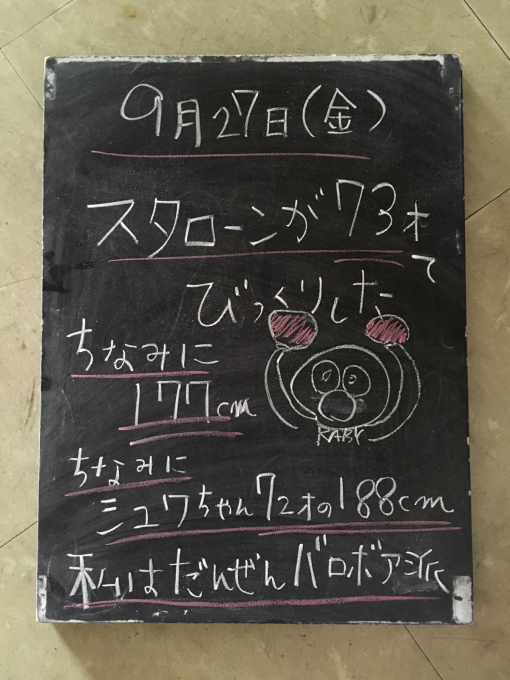 9月27日(金)
スタローンが73才
て
びっくりした
ちなみに
177cm
RABY
ちなみに
シュワちゃん72才の188cm
私はだんぜんバロボア派